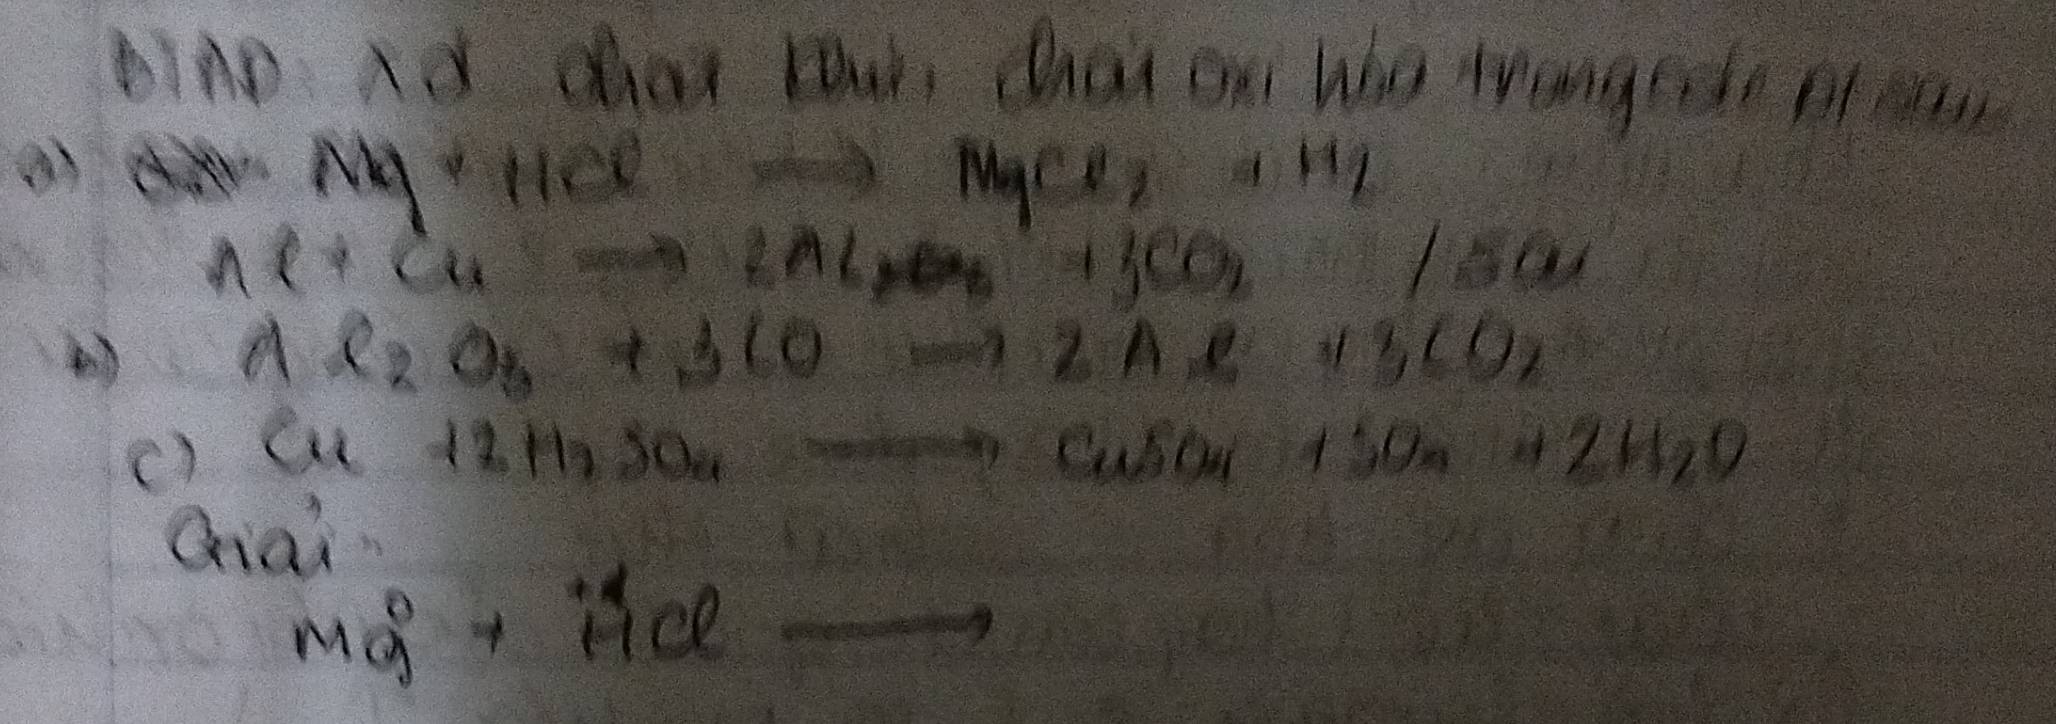 Xđ chất khử, chất oxi hóa trong các pt sau
a) Mg + HCl → MgCl2 + H2
Al + Cu → 2Al + 3CO2
b) Al2O3 + 3CO → 2Al + 3CO2
c) Cu + 2H2SO4 → CuSO4 + SO2 + 2H2O
Giải
Mg0 + H+1Cl →